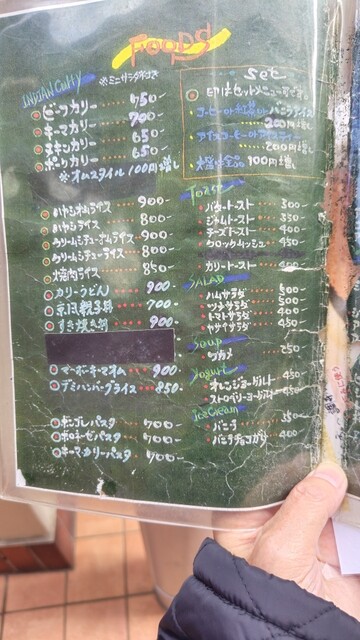 Foods
INDIAN Curry ※ミニサラダ付き
ビーフカリー 750-
キーマカリー 700
チキンカリー 650
ポークカリー 650
※オムスタイル 100円増し
ハヤシオムライス 900-
ハヤシライス 800-
クリームシチューオムライス 900-
クリームシチーライス 800-
焼肉ライス 850
カリーうどん 900-
京風親子丼 700-
すき焼き丼 900-
マーボーキーマオム 900
デミハンバーグライス 850-
ボンゴレパスタ 700-
ボロネーゼパスタ 700-
キーマカリーパスタ 700-
Set
印はセットメニュー可です
コーヒーor紅茶orバニラアイス
200円増し
アイスコーヒーorアイスティー
200円増し
大盛は全品 100円増し
Toast
バタートースト 300
ジャムトースト 350
チーズトースト 400
クロックムッシュ 450
カリートースト 400
SALAD
ハムサラダ 500
ツナサラダ 500
トマトサラダ 400
ヤサイサラダ 450
Soup
ワカメ 250
Yogurt
オレンジヨーグルト 450
ストロベリーヨーグルト 450
Ice Cream
バニラ 350
バニラチョコがけ 400